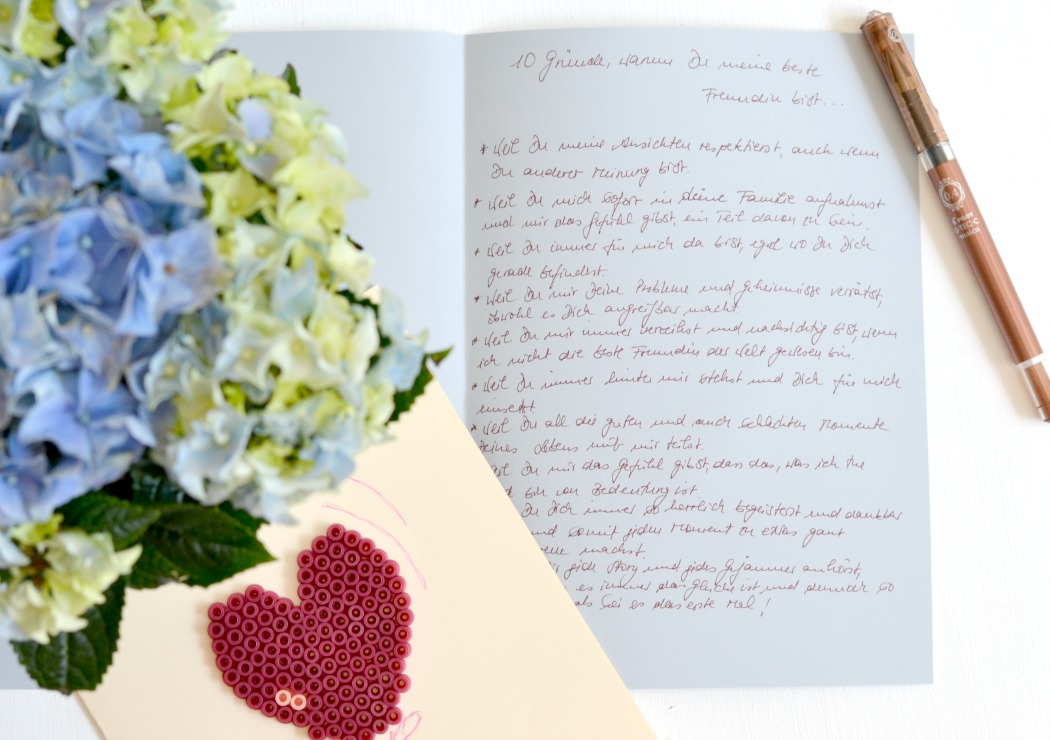 10 Gründe, warum Du meine beste
Freundin bist...
* Weil Du meine Ansichten respektierst, auch wenn
Du anderer Meinung bist.
* Weil Du mich sofort in deine Familie aufnahmst
und mir das Gefühl gibst, ein Teil davon zu sein.
* Weil Du immer für mich da bist, egal wo Du Dich
gerade befindest.
* Weil Du mir Deine Probleme und Geheimnisse verrätst,
obwohl es Dich angreifbar macht.
* Weil Du mir immer verzeihst und nachsichtig bist, wenn
ich nicht die beste Freundin der Welt gewesen bin.
* Weil Du immer hinter mir stehst und Dich für mich
einsetzt.
* Weil Du all die guten und auch schlechten Momente
Deines Lebens mit mir teilst.
Du mir das Gefühl gibst, dass das, was ich tue
bin von Bedeutung ist.
Du Dich immer so herrlich begeisterst und dankbar
und somit jeden Moment zu etwas ganz
machst.
jede Story und jedes Gejammer anhörst,
es immer das Gleiche ist und dennoch so
als sei es das erste Mal!
0.4